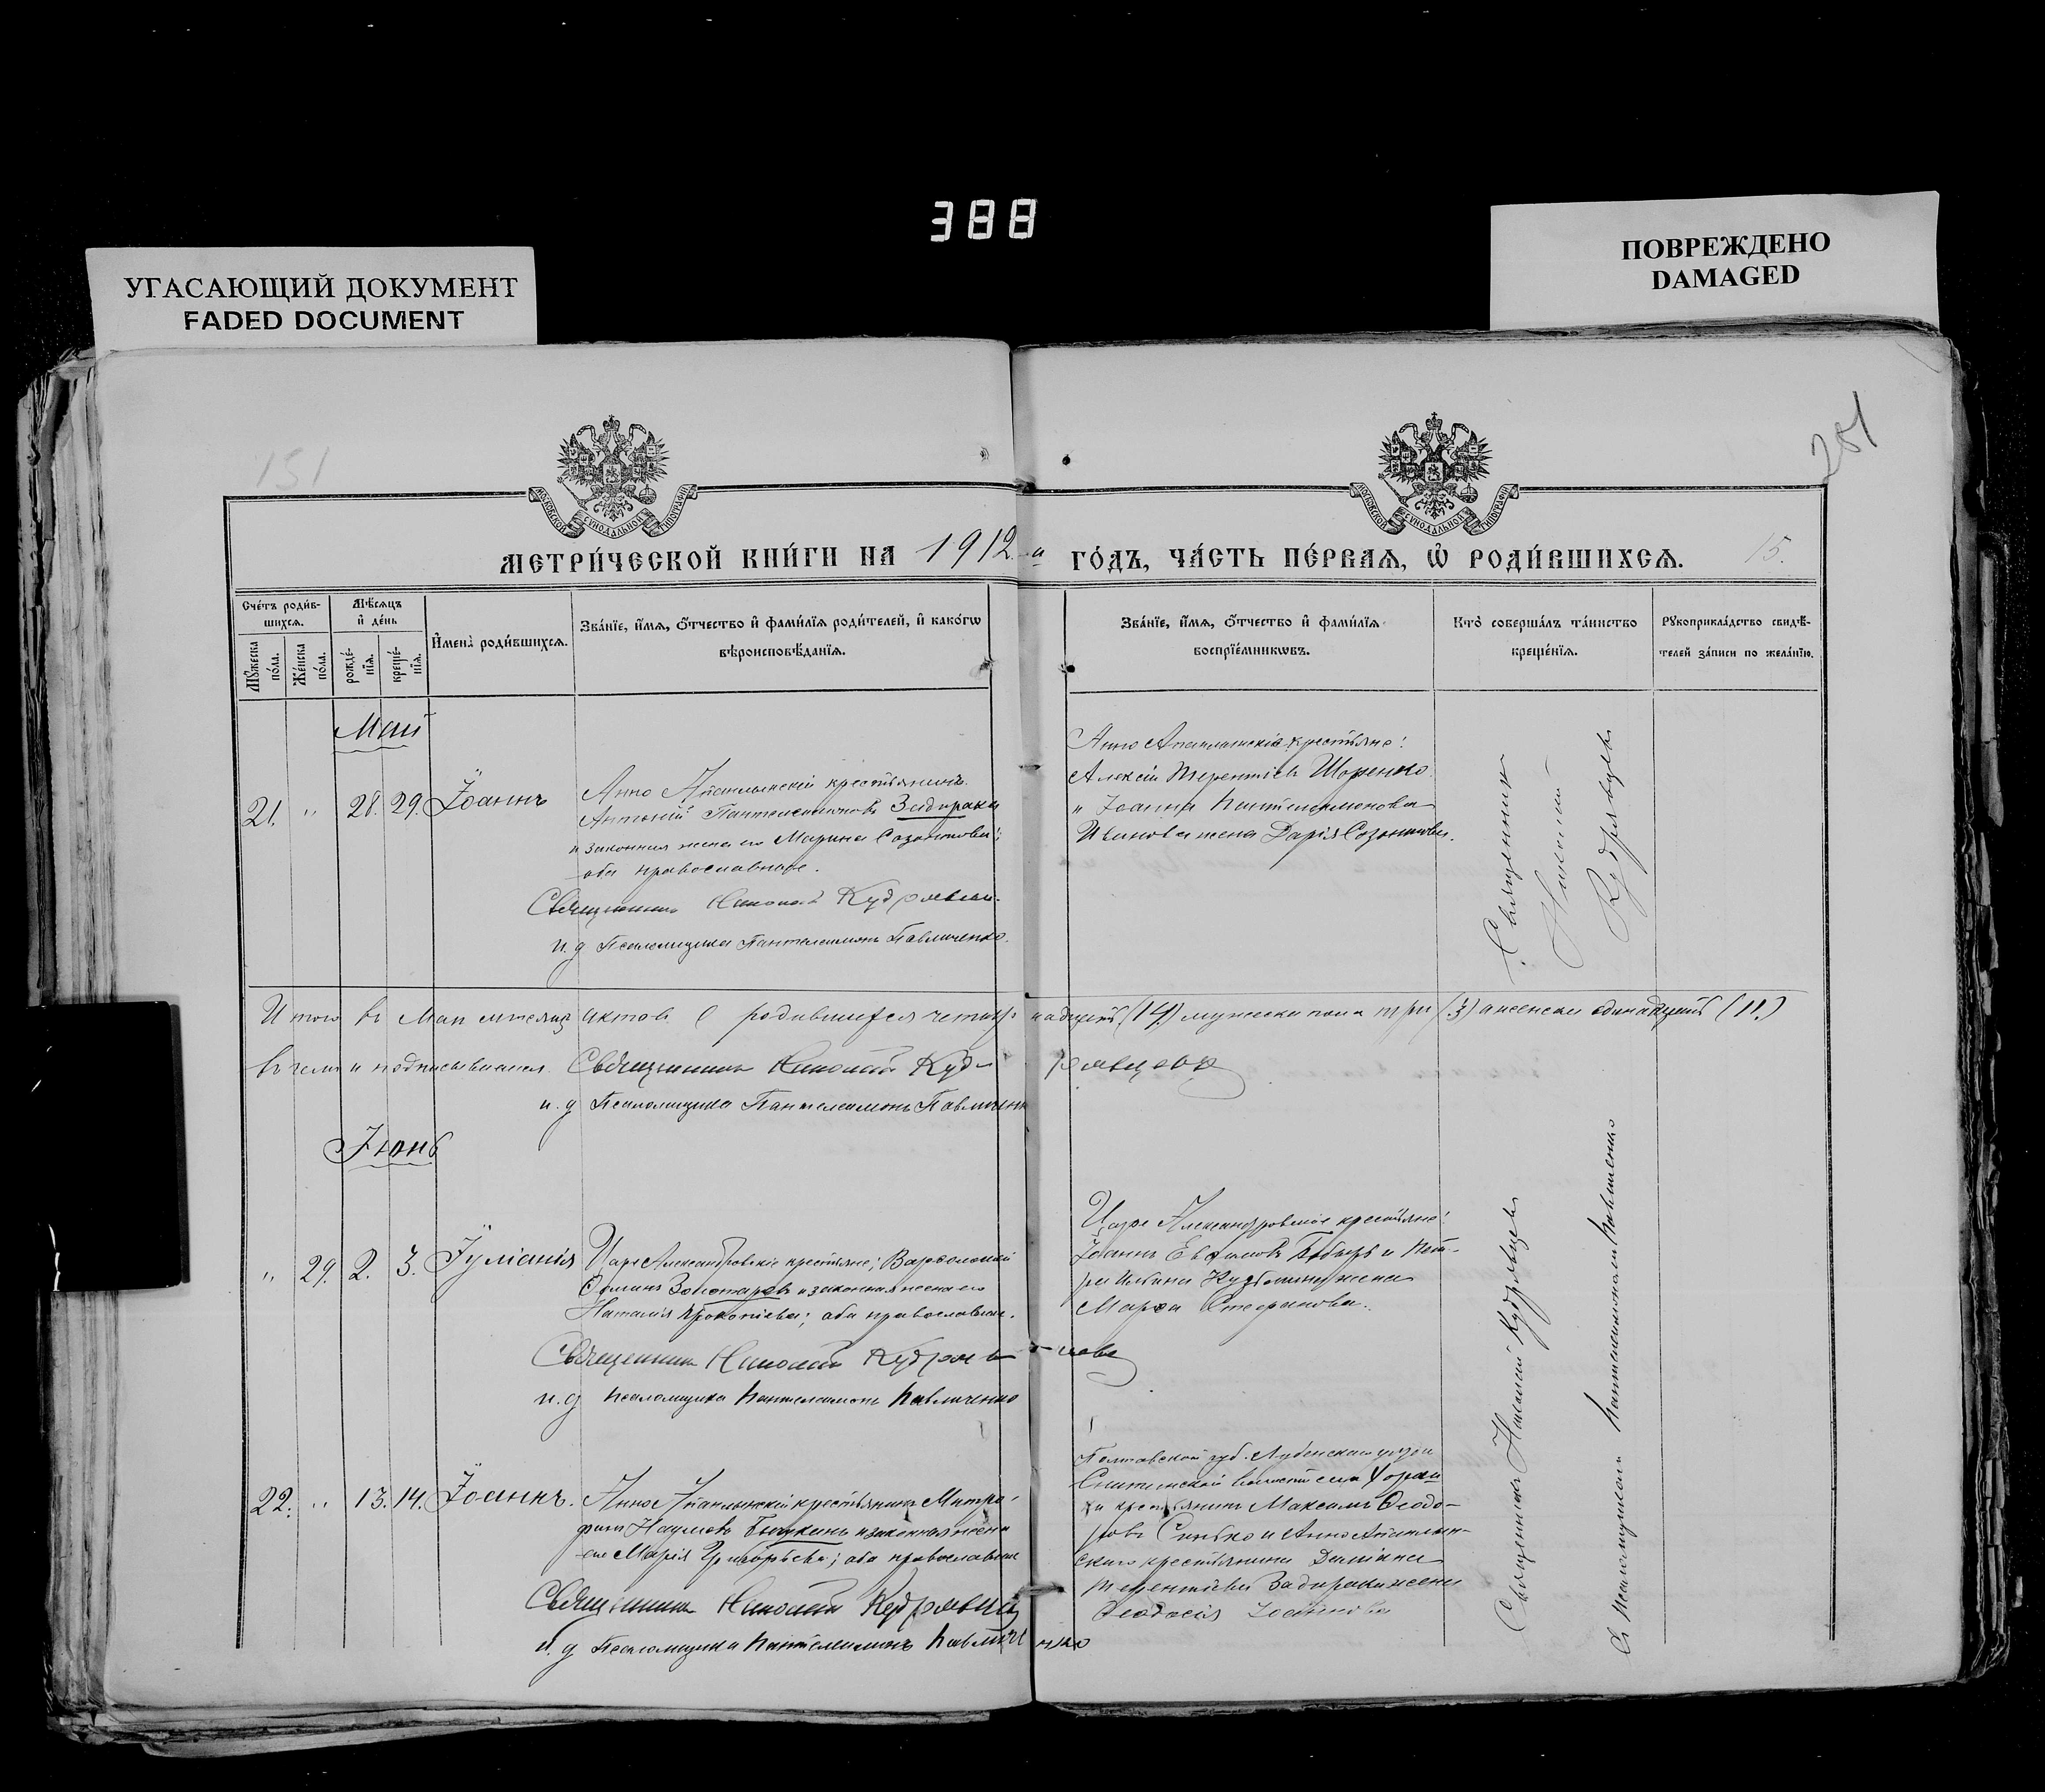 388
УГАСАЮЩИЙ ДОКУМЕНТ
FADED DOCUMENT
ПОВРЕЖДЕНО
DAMAGED
151
281
МОСКОВСКОЙ СѴНОДАЛЬНОЙ ТИПОГРАФІИ
МОСКОВСКОЙ СѴНОДАЛЬНОЙ ТИПОГРАФІИ
МЕТРИ́ЧЕСКОЙ КНИ́ГИ НА 1912-й ГО́ДЪ, ЧА́СТЬ ПЕ́РВАѦ, Ѡ҆ РОДИ́ВШИХСѦ. 15.
Сче́тъ роди́в-
шихсѧ.
Мꙋ́жеска по́ла.
Же́нска по́ла.
Мѣ́сѧцъ и҆ де́нь
рожде́-
нїѧ.
креще́-
нїѧ.
И҆мена̀ роди́вшихсѧ.
Зва́нїе, и҆́мѧ, ѻ҆́тчество и҆ фами́лїѧ роди́телей, и҆ како́гѡ
вѣроисповѣ́данїѧ.
Зва́нїе, и҆́мѧ, ѻ҆́тчество и҆ фами́лїѧ
воспрїе́мникѡвъ.
Кто̀ соверша́лъ та́инство
креще́нїѧ.
Рꙋкоприкла́дство свидѣ́-
телей за́писи по жела́нїю.
Май
21. " 28. 29. Іоаннъ
Анно Апаплынскій крестьянинъ
Антоній Пантелеимоновъ Задирака
и законная жена его Марина Созонтова;
оба православные.
Священникъ Николай Кудрявцев
и. д. Псаломщика Пантелеимонъ Павличенко.
крестьяне:
Алексій Терентіевъ Шоренко
и Іоанна Пантелеимонова
жена Дарія Созонтова.
Священникъ
Николай
Кудрявцевъ
Итого въ Маѣ мѣсяцѣ актовъ о родившихся четырнадцать (14) мужеска пола три (3) а женска одинадцать (11.)
въ чемъ и подписываемся. Священникъ Николай Кудрявцевъ
и. д. Псаломщика Пантелеимонъ Павличенко
Іюнь
" 29. 2. 3. Іуліанія
Царе Александровскіе крестьяне; Варфоломей
Золотаревъ и законная жена его
Наталія Прокопіева; оба православные.
Священникъ Николай Кудрявцевъ
и. д. Псаломщика Пантелеимонъ Павличенко
Царе Александровскіе крестьяне:
Іоаннъ Евфимовъ и Пет-
ра жена
Марфа Стефанова.
22. " 13. 14. Іоаннъ.
крестьянинъ Митро-
фанъ Наумовъ и законная жена
его Марія Григорьева; оба православные
Священникъ Николай Кудрявцевъ
и. д. Псаломщика Пантелеимонъ Павличенко
Полтавской губ. Лубенскаго уезда
волости села
крестьянинъ Максимъ Ѳеодо-
ровъ и
скаго крестьянина Даміана
Терентіева Задираки жена
Ѳеодосія Іоаннова
Священникъ Николай Кудрявцевъ
Съ псаломщикомъ Пантелеимономъ Павличенко